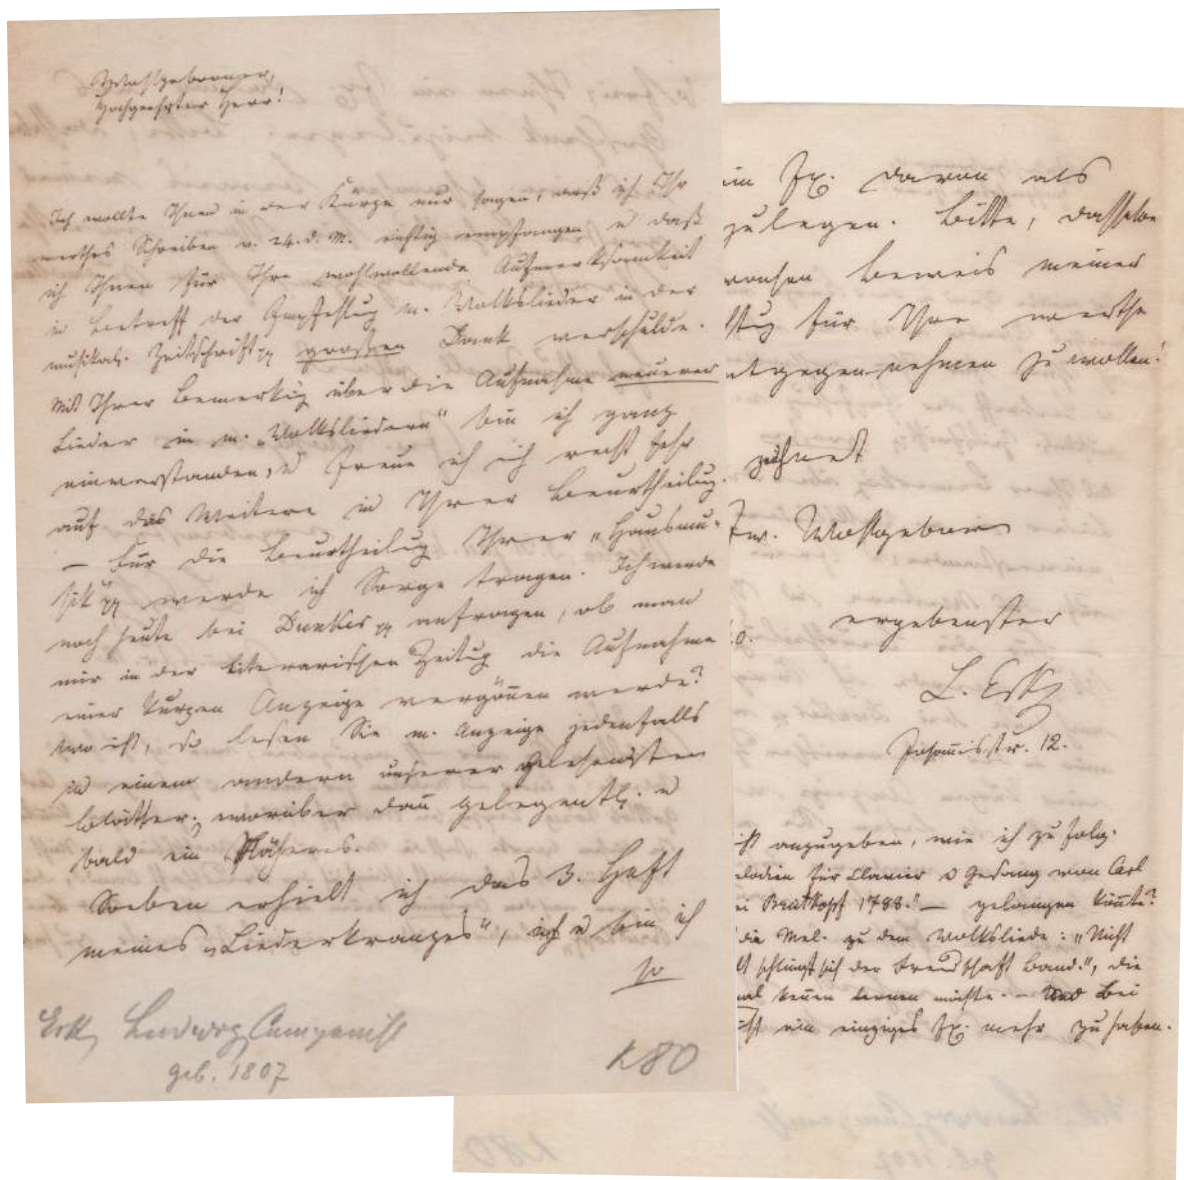 Wohlgeborner,
Hochgeehrter Herr!
Ich wollte Ihnen in der Kürze nur sagen, daß ich Ihr
werthes Schreiben v. 24. d. M. richtig empfangen, u daß
ich Ihnen für Ihre wohlwollende Aufmerksamkeit
in Betreff der Empfehlug m. Volkslieder in der
musikal. Zeitschrift pp großen Dank verschulde.
Mit Ihrer Bemerkug über die Aufnahme neuerer
Lieder in m. „Volksliedern“ bin ich ganz
einverstanden, u freue ich ich recht sehr
auf das Weitere in Ihrer Beurtheilug.
– Für die Beurtheilug Ihrer „Hausmu-
sik“ pp werde ich Sorge tragen. Ich werde
noch heute bei Duncker pp anfragen, ob man
mir in der literarischen Zeitug die Aufnahme
einer kurzen Anzeige vergönnen werde?
wo ist, so lesen Sie m. Anzeige jedenfalls
in einem andern unserer gelesensten
Blätter; worüber dann gelegentl. u
bald ein Näheres.
Soeben erhielt ich das 3. Heft
meines „Liederkranzes“, u bin ich
so
Erk, Ludwig, Componist
geb. 1807
K80
Ex. davon als
zulegen. Bitte, dasselbe
Beweis meiner
für Ihre werthe
entgegennehmen zu wollen!
zeichnet
Ew. Wohlgeboren
ergebenster
L. Erk
Johannisstr. 12.
anzugeben, wie ich zu folg.
Melodien für Clavier u Gesang von Carl
bei Breitkopf 1788.“ – gelangen könnte?
die Mel. zu dem Volksliede: „Nicht
schlingt sich der Freundschaft Band.“, die
kennen lernen möchte. – Und bei
ist ein einziges Ex. mehr zu haben.